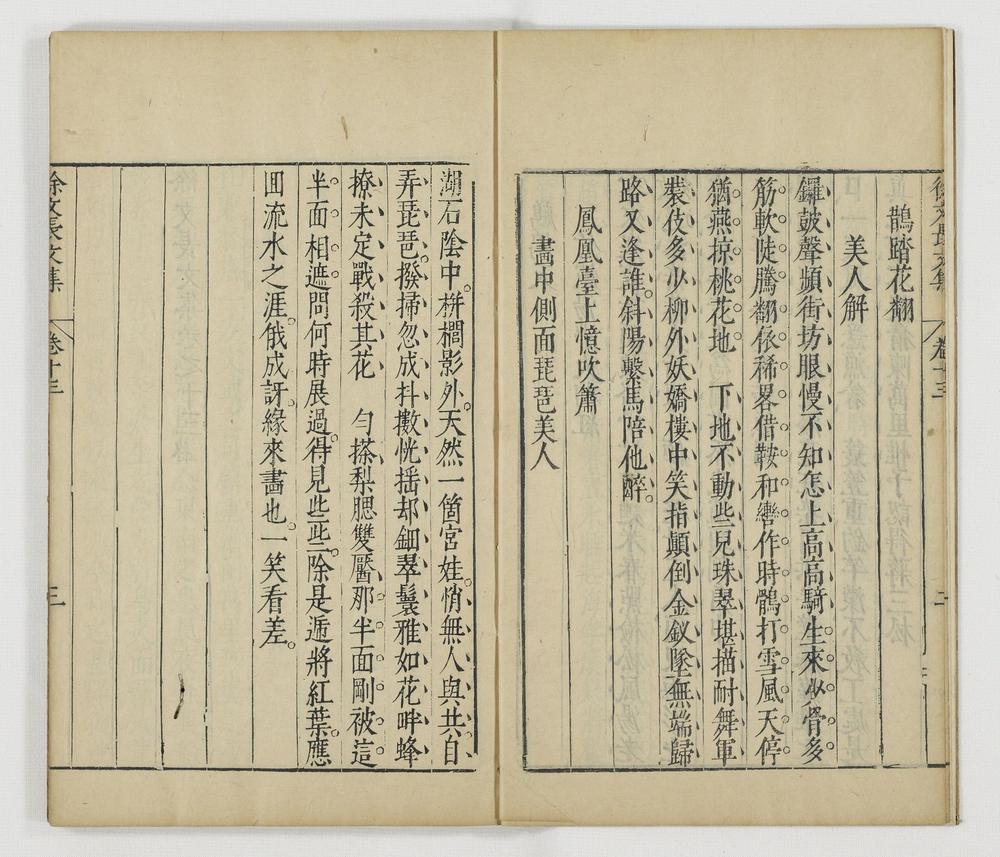 徐文長文集
卷十三
二
鶻踏花翻
美人解
鑼皷聲頻街坊眼慢不知怎上高高騎生來少骨多
筋軟陡騰翻依稀畧借鞍和轡作時鶻打雪風天停
猶燕掠桃花地　下地不動些兒珠翠堪描耐舞軍
裝伎多少柳外妖嬌樓中笑指顛倒金釵墜無端歸
路又逢誰斜陽繫馬陪他醉
鳳凰臺上憶吹簫
畫中側面琵琶美人
湖石陰中栟櫚影外天然一箇宮娃悄無人與共自
弄琵琶撥掃忽成抖擻恍揺却鈿翠鬟雅如花畔蜂
撩未定戰殺其花　勻搽梨腮雙靨那半面剛被這
半面相遮問何時展過得見些些除是遁將紅葉應
囬流水之涯俄成訝緣來畫也一笑看差
徐文長文集
卷十三
三